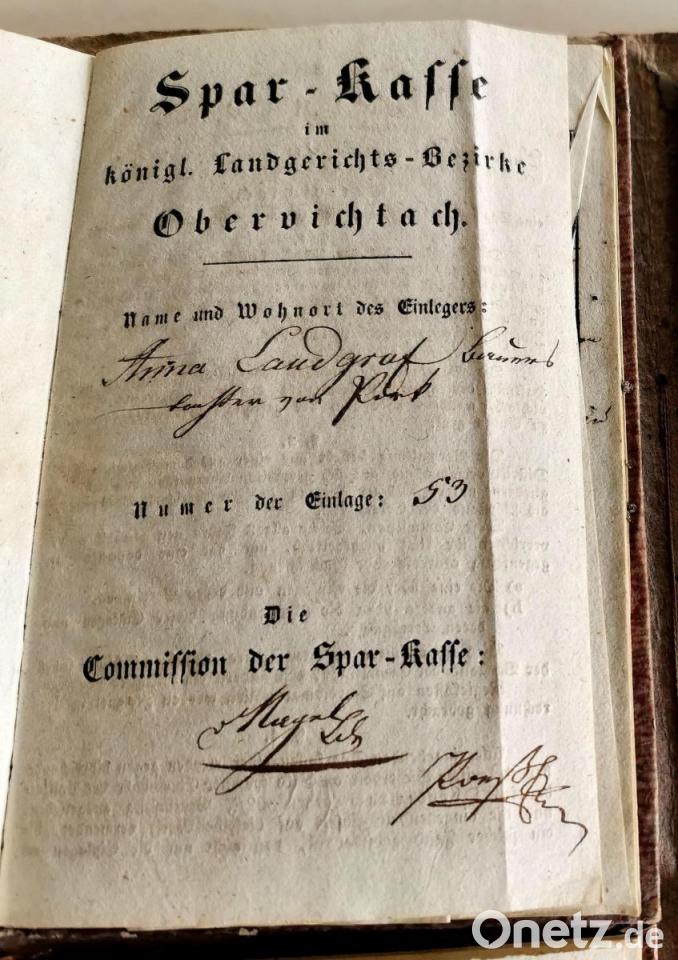 Spar-Kasse
im
königl. Landgerichts-Bezirke
Oberviechtach.
Name und Wohnort des Einlegers:
Anna Landgraf Bauers
tochter von
Numer der Einlage: 53
Die
Commission der Spar-Kasse:
Onetz.de